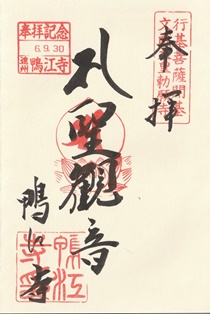 行基菩薩開基
奉拝
聖観音
奉拝記念
6.9.30
遠州 鴨江寺
鴨江寺
鴨江
寺印